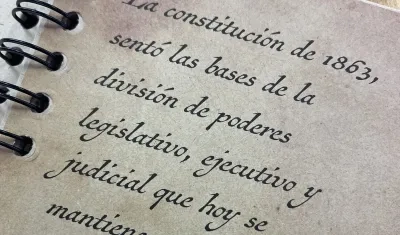 La constitución de 1863,
sentó las bases de la
división de poderes
legislativo, ejecutivo y
judicial que hoy se
mantiene